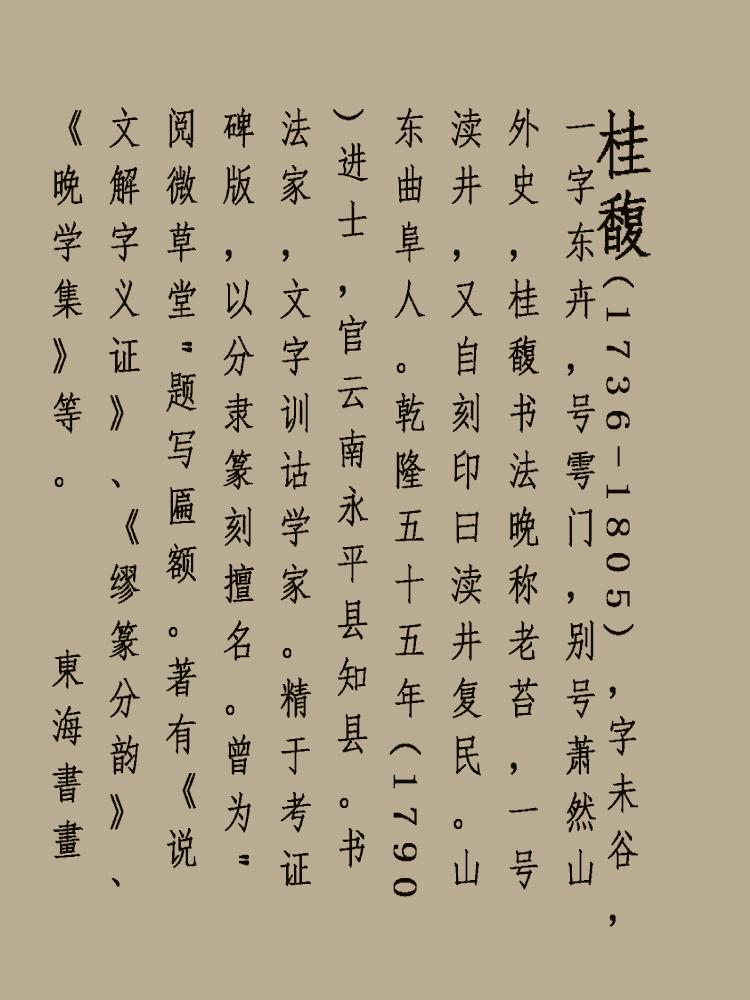 桂馥(1736-1805)，字未谷，
一字东卉，号雩门，别号萧然山
外史，桂馥书法晚称老苔，一号
渎井，又自刻印曰渎井复民。山
东曲阜人。乾隆五十五年(1790
)进士，官云南永平县知县。书
法家，文字训诂学家。精于考证
碑版，以分隶篆刻擅名。曾为"
阅微草堂"题写匾额。著有《说
文解字义证》、《缪篆分韵》、
《晚学集》等。
東海書畫